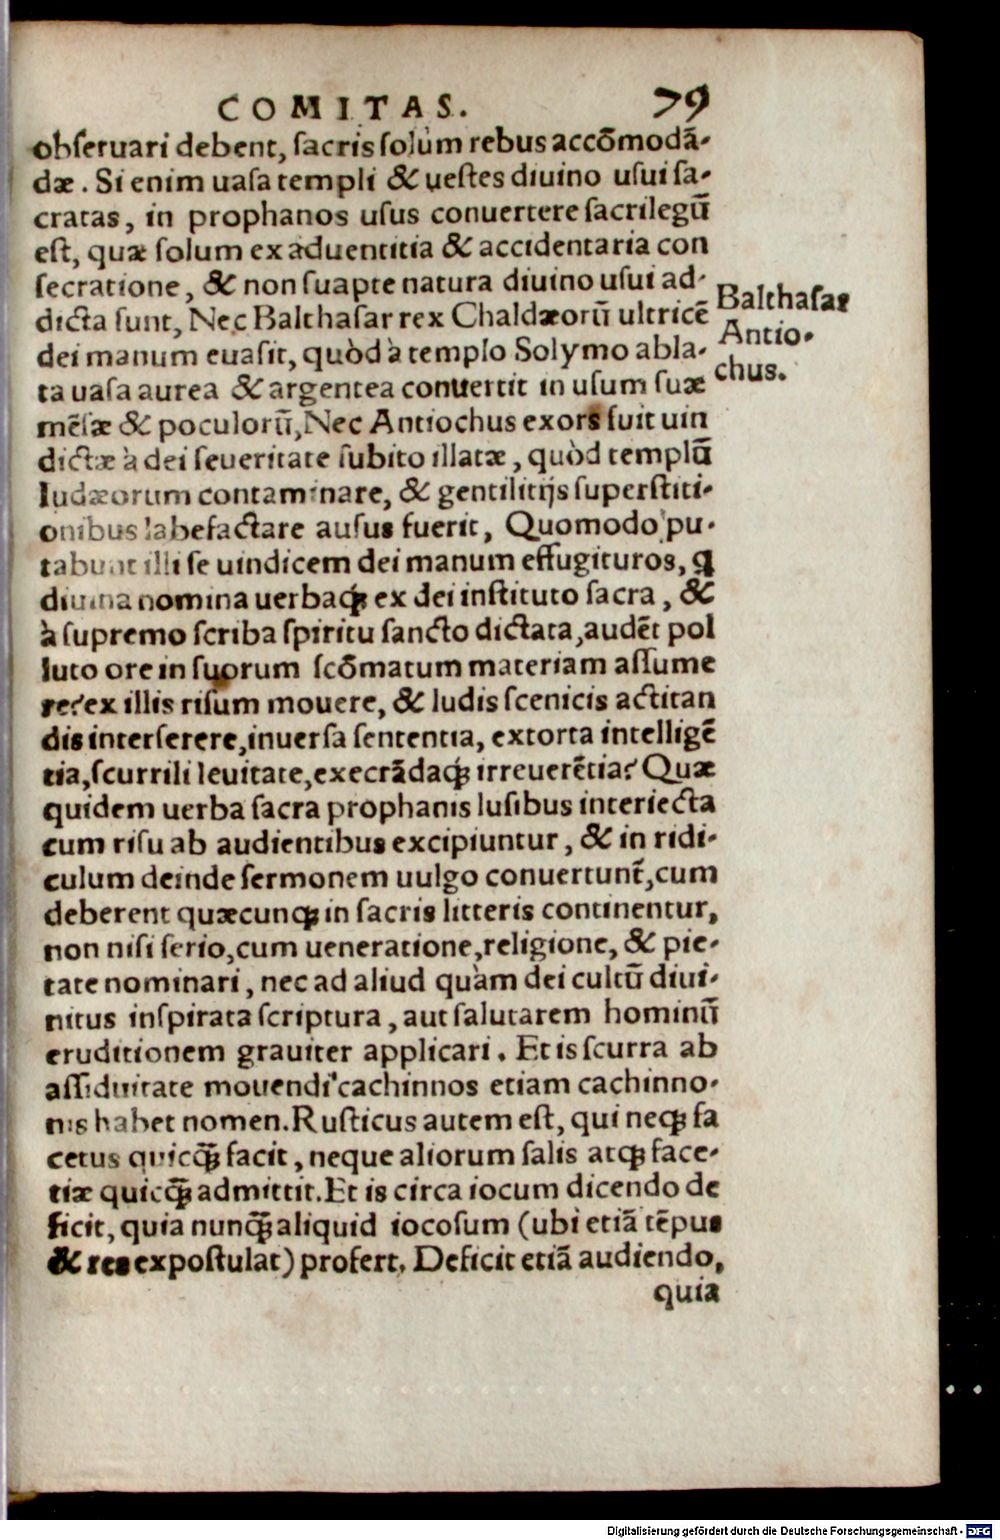 COMITAS. 79
obſeruari debent, ſacris ſolùm rebus accōmodā-
dæ. Si enim uaſa templi & ueſtes diuino uſui ſa-
cratas, in prophanos uſus conuertere ſacrilegū
eſt, quæ ſolum ex aduentitia & accidentaria con
ſecratione, & non ſuapte natura diuino uſui ad-
dicta ſunt, Nec Balthaſar rex Chaldæorū ultricē
dei manum euaſit, quòd à templo Solymo abla-
ta uaſa aurea & argentea conuertit in uſum ſuæ
mēſæ & poculorū, Nec Antiochus exors fuit uin
dictæ à dei ſeueritate ſubito illatæ, quòd templū
Iudæorum contaminare, & gentilitijs ſuperſtiti-
onibus labefactare auſus fuerit, Quomodo pu-
tabunt illi ſe uindicem dei manum effugituros, ꝗ
diuina nomina uerbaqꝫ ex dei inſtituto ſacra, &
à ſupremo ſcriba ſpiritu ſancto dictata, audēt pol
luto ore in ſuorum ſcōmatum materiam aſſume
re? ex illis riſum mouere, & ludis ſcenicis actitan
dis interſerere, inuerſa ſententia, extorta intelligē
tia, ſcurrili leuitate, execrādaqꝫ irreuerētia? Quæ
quidem uerba ſacra prophanis luſibus interiecta
cum riſu ab audientibus excipiuntur, & in ridi-
culum deinde ſermonem uulgo conuertunt̄, cum
deberent quæcunqꝫ in ſacris litteris continentur,
non niſi ſerio, cum ueneratione, religione, & pie-
tate nominari, nec ad aliud quàm dei cultū diui-
nitus inſpirata ſcriptura, aut ſalutarem hominū
eruditionem grauiter applicari. Et is ſcurra ab
aſſiduitate mouendi cachinnos etiam cachinno-
nis habet nomen. Ruſticus autem eſt, qui neqꝫ fa
cetus quicq̄ꝫ facit, neque aliorum ſalis atqꝫ face-
tiæ quicq̄ꝫ admittit. Et is circa iocum dicendo de
ficit, quia nunq̄ꝫ aliquid iocoſum (ubi etiā tēpus
& res expoſtulat) profert. Deficit etiā audiendo,
quia
Balthaſar
Antio-
chus.
Digitalisierung gefördert durch die Deutsche Forschungsgemeinschaft - DFG